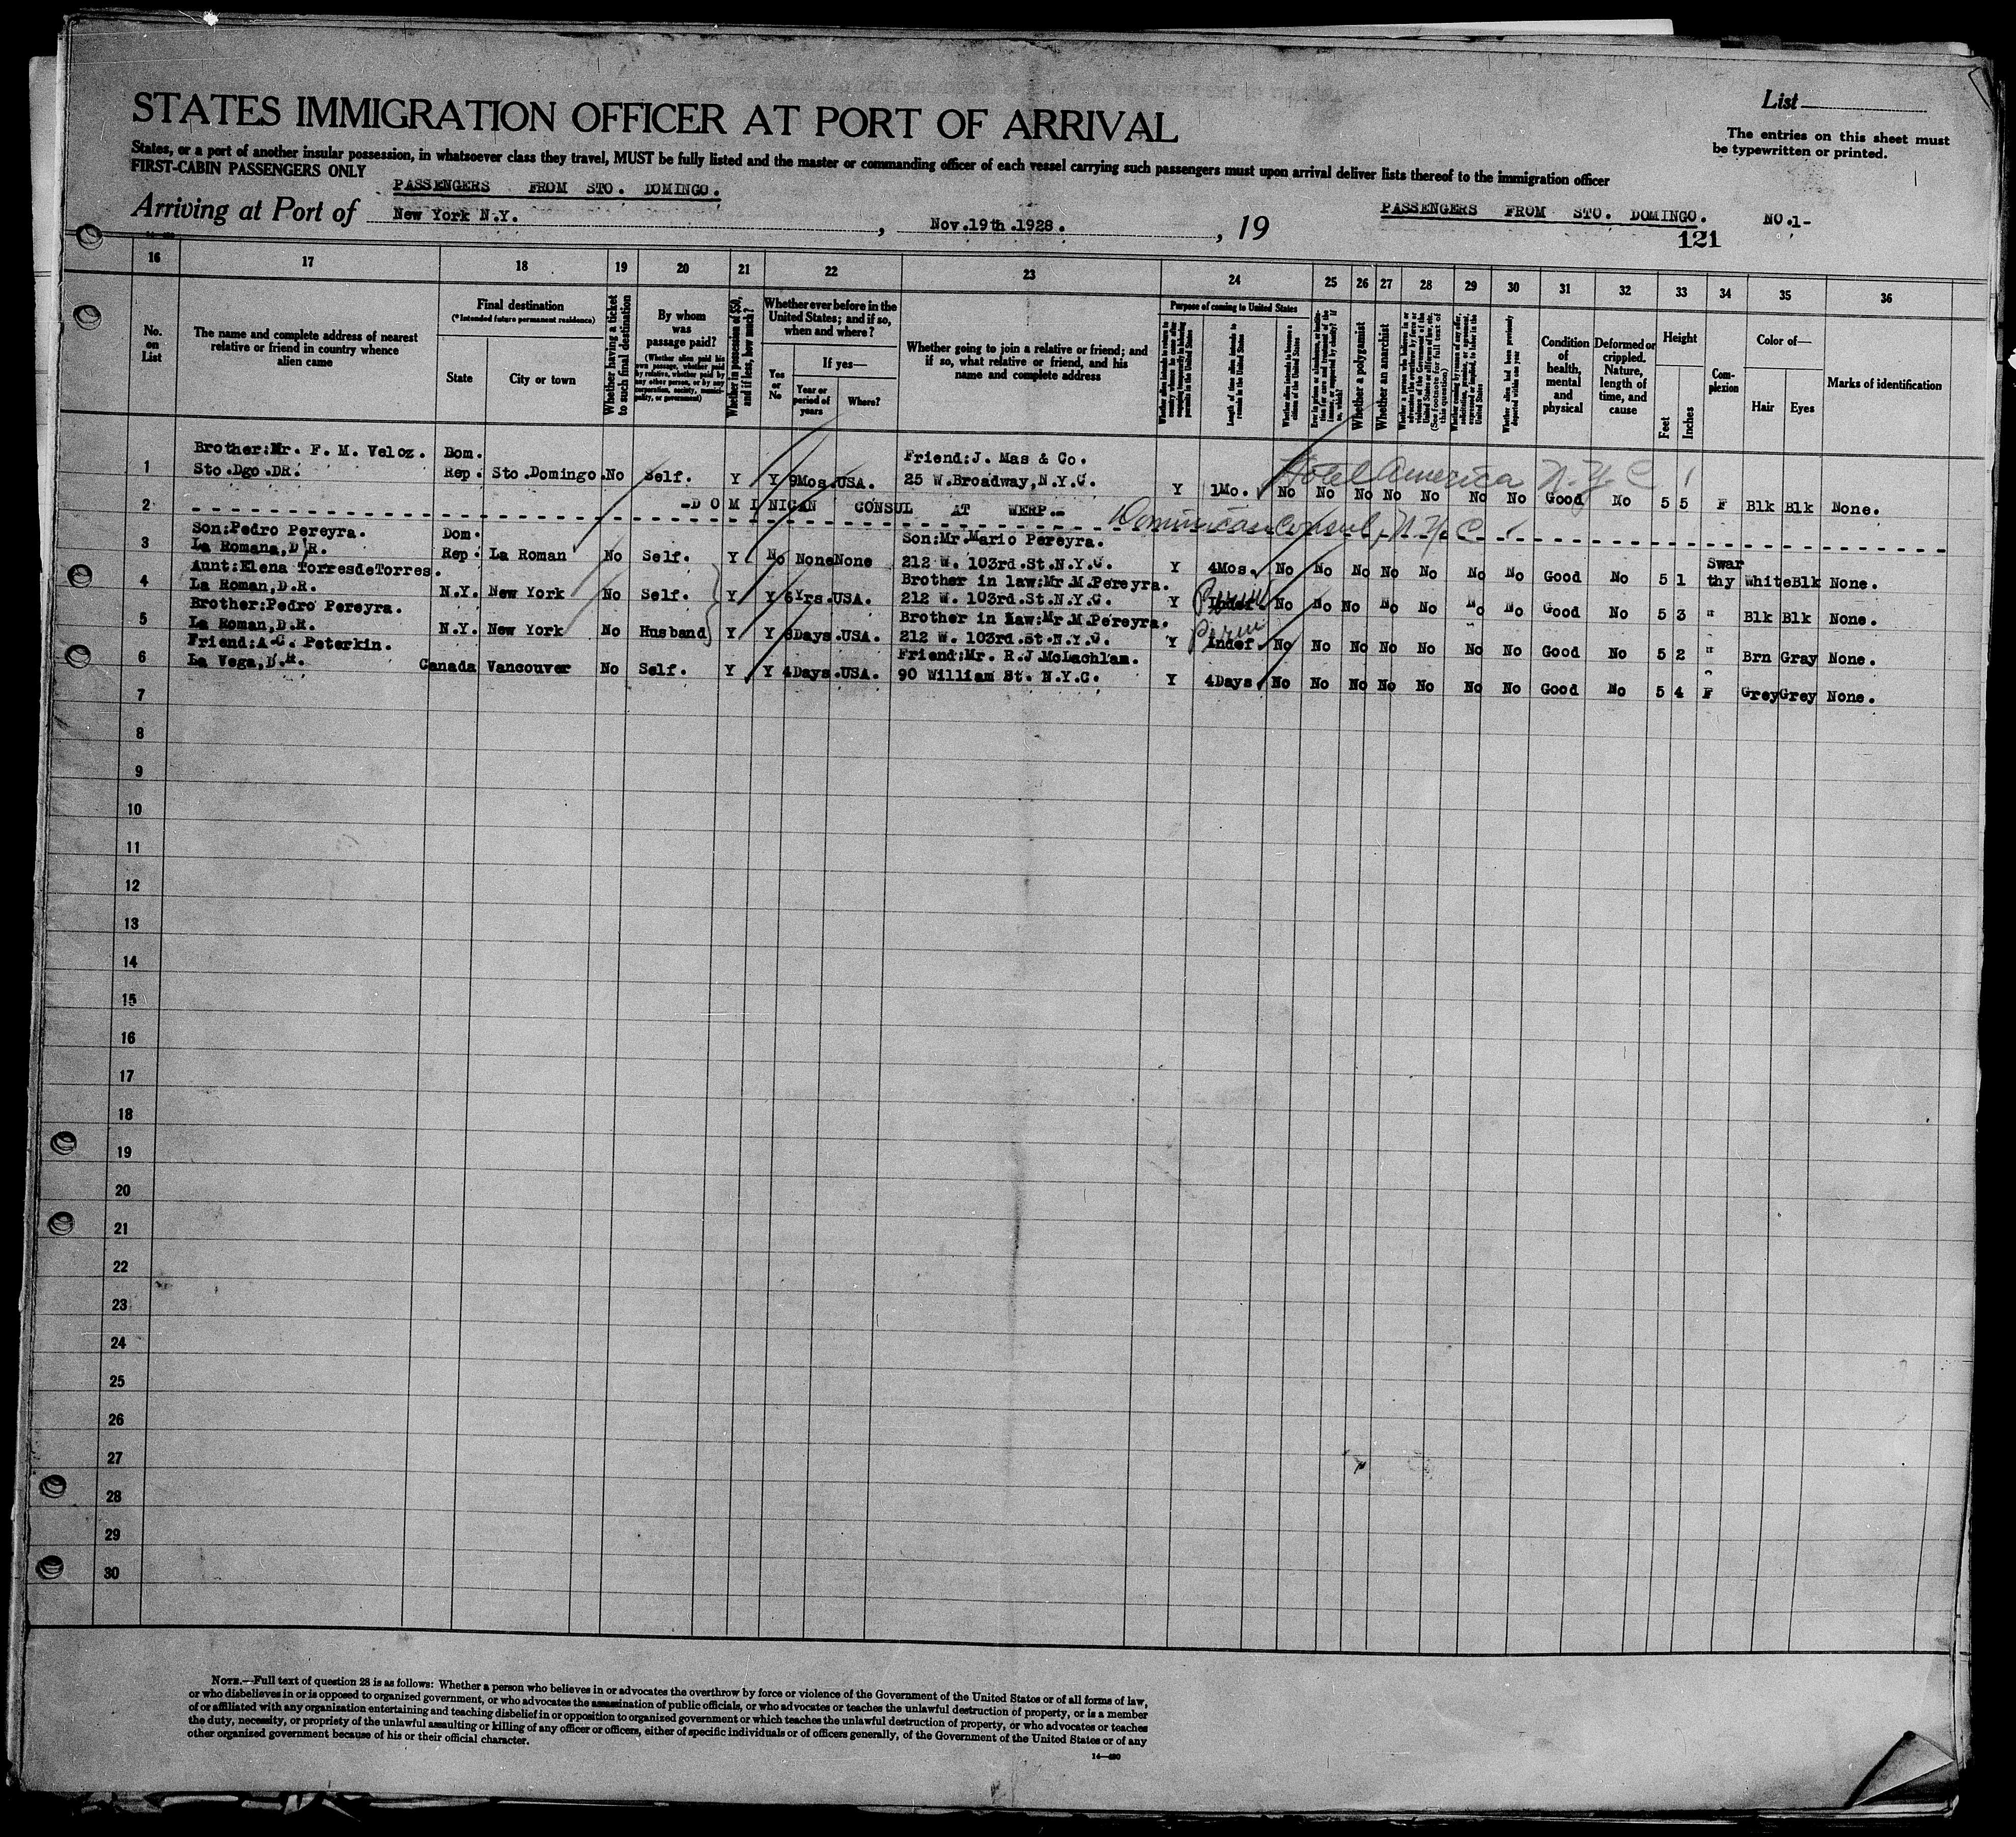 List
The entries on this sheet must
be typewritten or printed.
STATES IMMIGRATION OFFICER AT PORT OF ARRIVAL
States, or a port of another insular possession, in whatsoever class they travel, MUST be fully listed and the master or commanding officer of each vessel carrying such passengers must upon arrival deliver lists thereof to the immigration officer
FIRST-CABIN PASSENGERS ONLY
PASSENGERS FROM STO. DOMINGO.
Arriving at Port of New York N.Y. , Nov.19th.1928. , 19
PASSENGERS FROM STO. DOMINGO. NO.1-
121
16 17 18 19 20 21 22 23 24 25 26 27 28 29 30 31 32 33 34 35 36
No. on List
The name and complete address of nearest relative or friend in country whence alien came
Final destination
(*Intended future permanent residence)
State
City or town
Whether having a ticket to such final destination
By whom was passage paid?
(Whether alien paid his own passage, whether paid by relative, whether paid by any other person, or by any corporation, society, municipality, or government)
Whether in possession of $50, and if less, how much?
Whether ever before in the United States; and if so, when and where?
Yes or No
If yes—
Year or period of years
Where?
Whether going to join a relative or friend; and if so, what relative or friend, and his name and complete address
Purpose of coming to United States
Length of time alien intends to remain in the United States
Whether alien intends to become a citizen of the United States
Whether a polygamist
Whether an anarchist
(See footnote for full text of this question)
Whether alien had been previously deported within one year
Condition of health, mental and physical
Deformed or crippled. Nature, length of time, and cause
Height
Feet
Inches
Complexion
Color of—
Hair
Eyes
Marks of identification
Brother:Mr. F. M. Veloz. Dom. Friend:J. Mas & Co. Hotel America N.Y.C
1 Sto.Dgo.DR. Rep. Sto.Domingo.No Self. Y Y 9Mos.USA. 25 W.Broadway,N.Y.C. Y 1Mo. No No No No No No No Good No 5 5 F Blk Blk None.
2 -DOMINICAN CONSUL AT WERP.- Dominican Consul, N.Y.C.
Son:Pedro Pereyra. Dom. Son:Mr.Mario Pereyra.
3 La Romana,D.R. Rep. La Roman No Self. Y No None None 212 W. 103rd.St.N.Y.C. Y 4Mos. No No No No No No No Good No 5 1 Swar thy White Blk None.
Aunt:Elena TorresdeTorres. Brother in law:Mr.M.Pereyra.
4 La Roman,D.R. N.Y. New York No Self. Y Y 6Yrs.USA. 212 W. 103rd.St.N.Y.C. Y No No No No No No No Good No 5 3 " Blk Blk None.
Brother:Pedro Pereyra. Brother in Law:Mr.M.Pereyra. Perm
5 La Roman,D.R. N.Y. New York No Husband Y Y 8Days.USA. 212 W. 103rd.St.N.Y.C. Y Indef. No No No No No No No Good No 5 2 " Brn Gray None.
Friend:A.C. Peterkin. Friend:Mr. R.J McLachlam.
6 La Vega,D.R. Canada Vancouver No Self. Y Y 4Days.USA. 90 William St. N.Y.C. Y 4Days. No No No No No No No Good No 5 4 F Grey Grey None.
7
8
9
10
11
12
13
14
15
16
17
18
19
20
21
22
23
24
25
26
27
28
29
30
NOTE.—Full text of question 28 is as follows: Whether a person who believes in or advocates the overthrow by force or violence of the Government of the United States or of all forms of law,
or who disbelieves in or is opposed to organized government, or who advocates the assassination of public officials, or who advocates or teaches the unlawful destruction of property, or is a member
of or affiliated with any organization entertaining and teaching disbelief in or opposition to organized government or which teaches the unlawful destruction of property, or who advocates or teaches
the duty, necessity, or propriety of the unlawful assaulting or killing of any officer or officers, either of specific individuals or of officers generally, of the Government of the United States or of any
other organized government because of his or their official character.